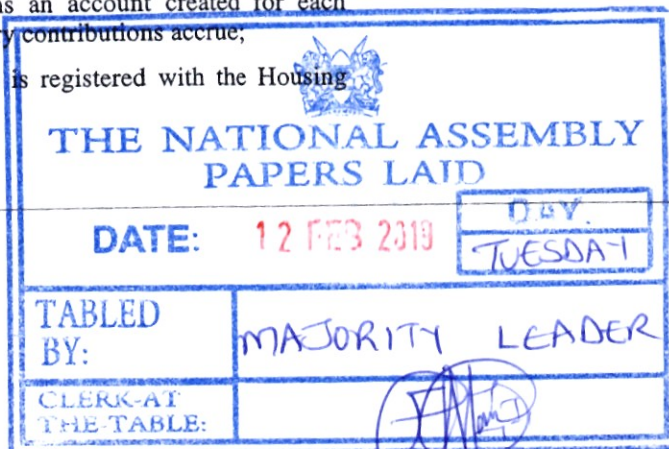 as an account created for each
y contributions accrue;
is registered with the Housing
THE NATIONAL ASSEMBLY
PAPERS LAID
DATE: 12 FEB 2019 DAY.
TUESDAY
TABLED BY: MAJORITY LEADER
CLERK-AT THE-TABLE: